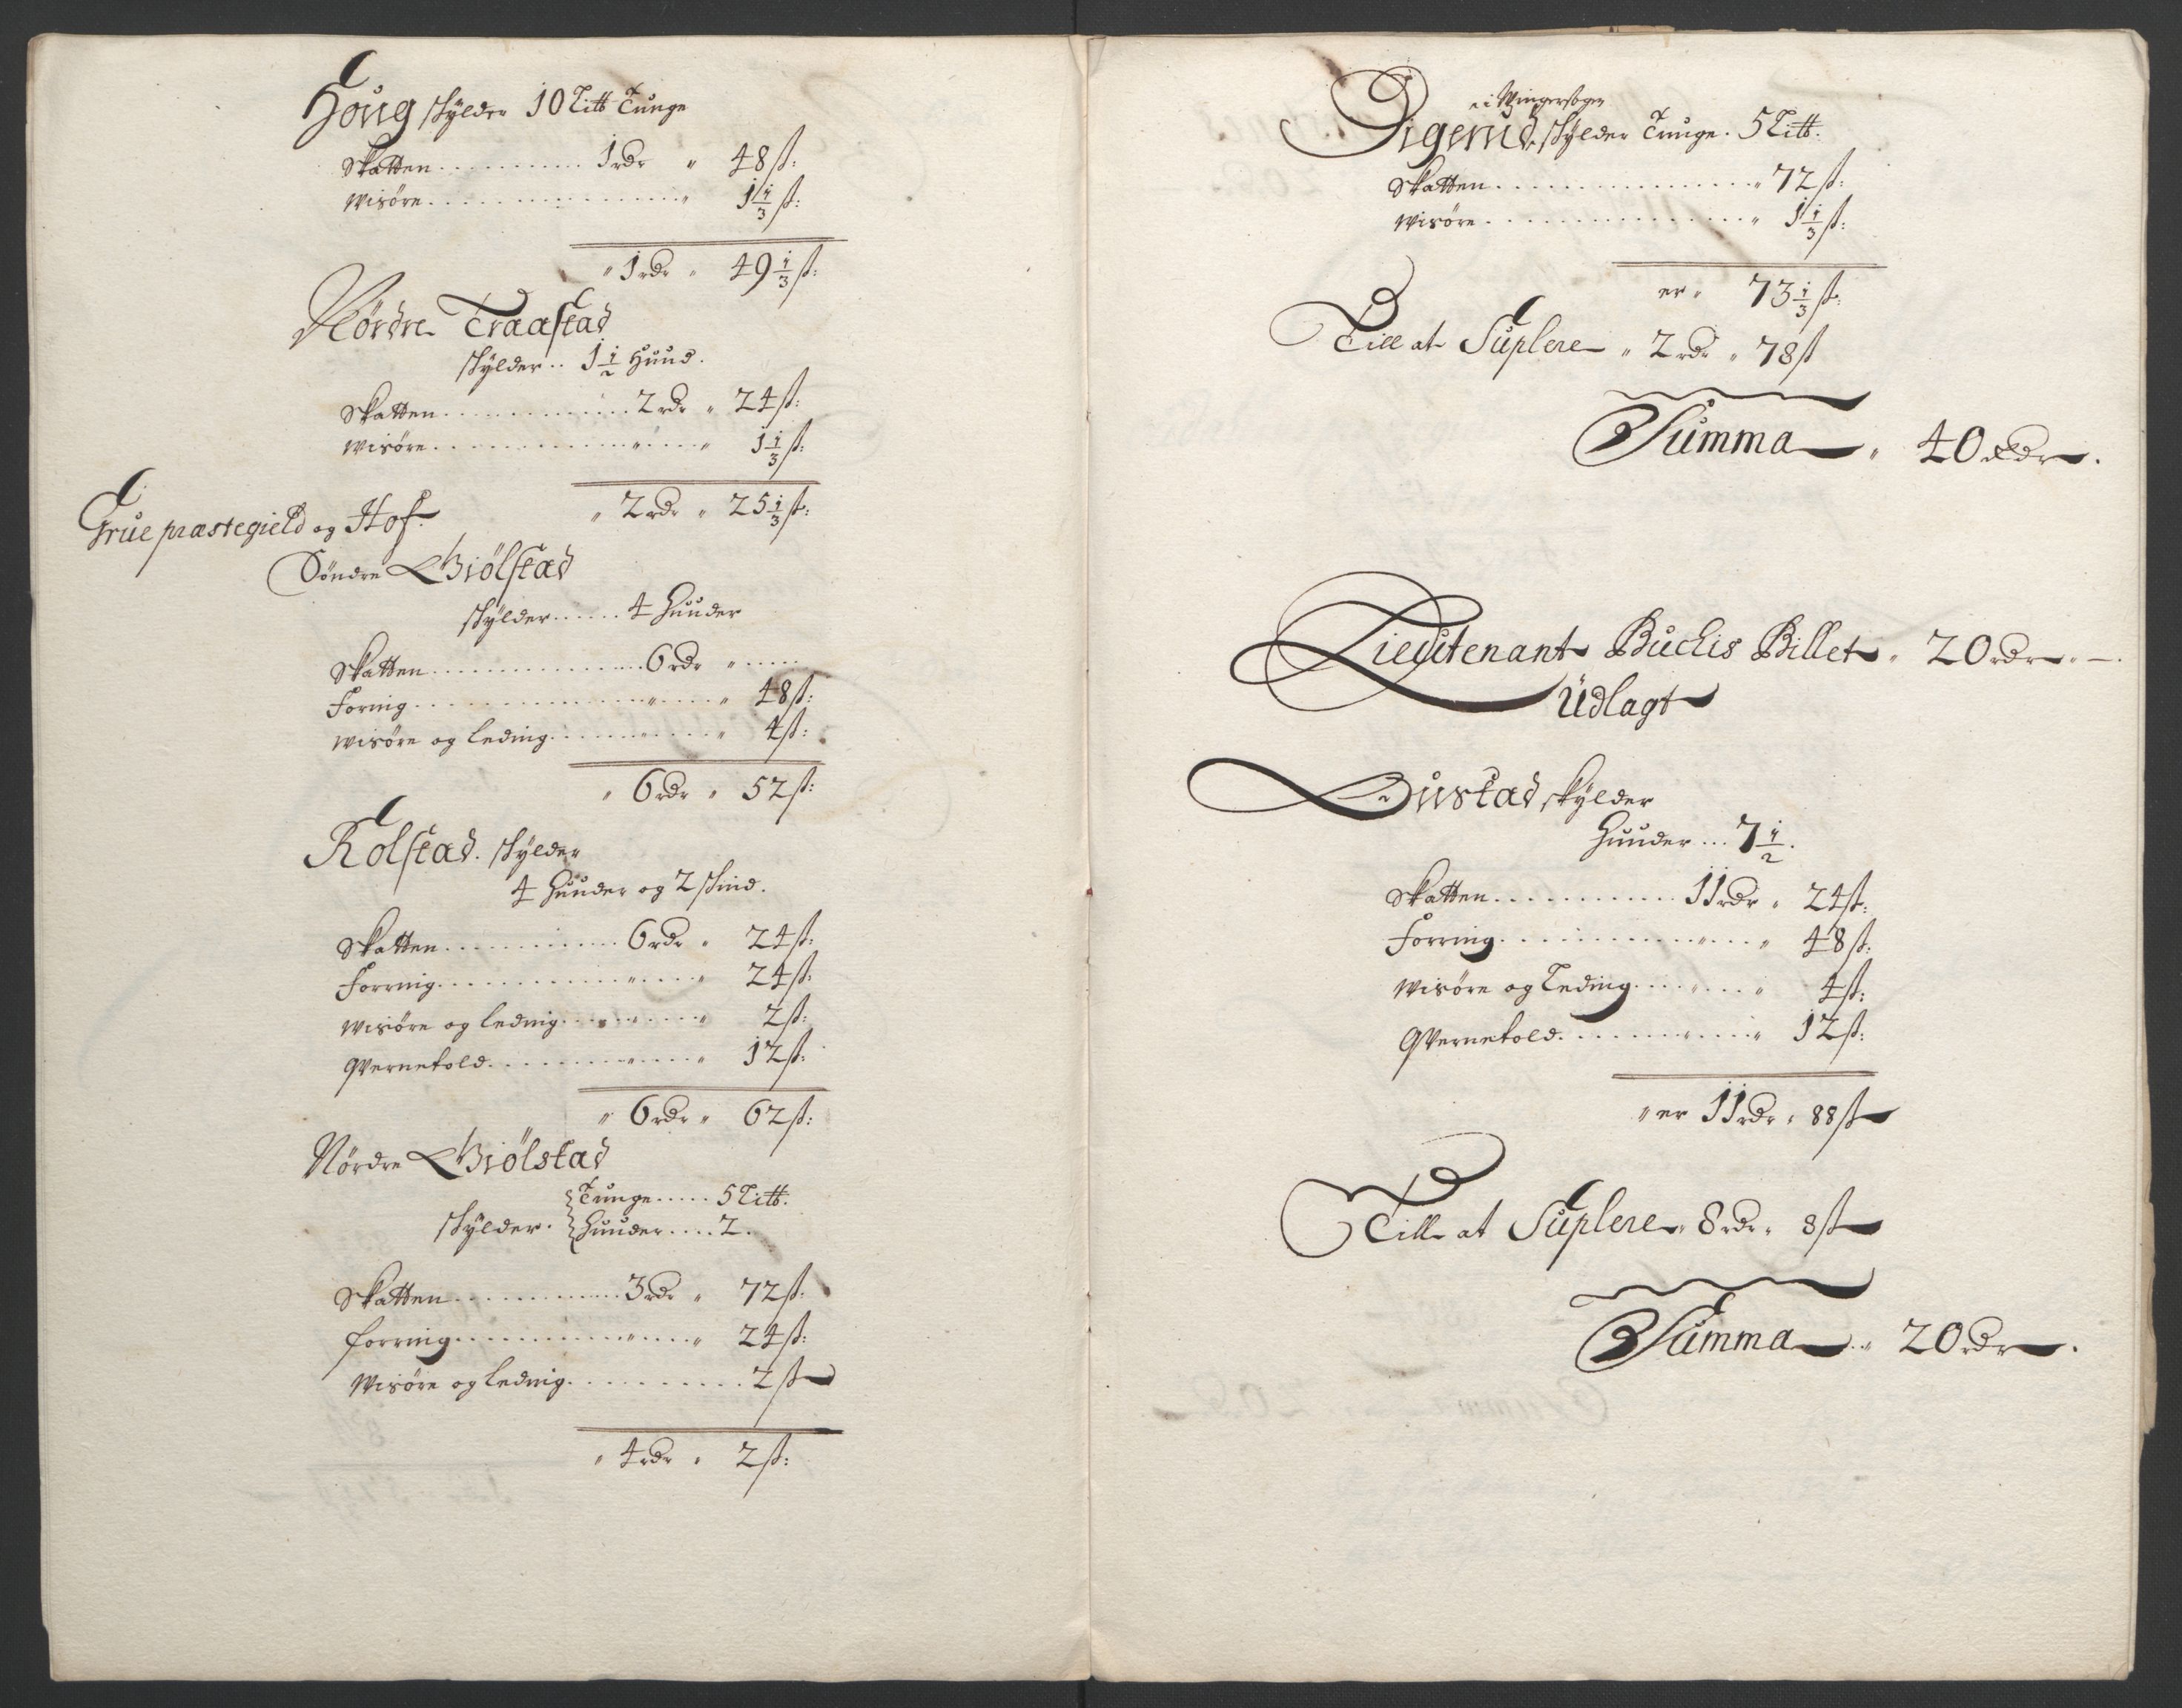 Houg skÿlder 10 Litt Tunge
Skatten . . . . . . . . . . . 1 rdr " 48 ß:
Wisöre . . . . . . . . . . . . . . . . " 1 1/3 ß:
" 1 rdr " 49 1/3 ß:
Nördre Traastad
skÿlder . . 1 1/2 Huud.
Skatten . . . . . . . . . . . . . 2 rdr " 24 ß:
Wisöre . . . . . . . . . . . . . " . . . . " 1 1/3 ß:
" 2 rdr " 25 1/3 ß:
Grue præstegield og Hof.
Söndre Giölstad
skÿlder . . . . . . 4 Huuder
Skatten . . . . . . . . . . . . . . 6 rdr " . . . . .
Foring . . . . . . . . . . . . . . . " . . . . " 48 ß:
wisöre og leding . . . . . . " . . . . " 4 ß:
" 6 rdr " 52 ß:
Rolstad. skÿlder
4 Huuder og 2 skind.
Skatten . . . . . . . . . . . . 6 rdr " 24 ß:
Forring . . . . . . . . . . . . " . . . . " 24 ß:
wisöre og leding . . . . . . . . . . " 2 ß:
Qvernetold . . . . . . . . . " . . . . " 12 ß:
" 6 rdr " 62 ß:
Nördre Giölstad
Tunge . . . . . 5 Litt.
skÿlder . Huuder . . . . 2 .
Skatten . . . . . . . . . . . . 3 rdr " 72 ß:
forring . . . . . . . . . . . . " . . . . " 24 ß:
Wisöre og leding . . . . . . . . . . . 2 ß
" 4 rdr " 2 ß:
i Wingersogn
Digerud, skÿlder Tunge . 5 Litt.
Skatten . . . . . . . . . . . . . . . . . . " 72 ß:
Wisöre . . . . . . . . . . . . . . . . . . " 1 1/3 ß:
er " 73 1/3 ß:
Till at Süplere " 2 rdr " 78 ß
Summa " 40 Rdr.
Lieutenant Buchs Billet " 20 rdr " —.
Üdlagt
Gustad skÿlder
Huuder . . . 7 1/2 .
Skatten . . . . . . . . . . . . 11 rdr " 24 ß:
Forring . . . . . . . . . . . . . " . . . " 48 ß:
Wisöre og Leding . . . . " . . . " 4 ß:
Qvernetold . . . . . . . . . " . . . " 12 ß:
" er 11 rdr " 88 ß
Till at Süplere " 8 rdr " 8 ß
Summa . " 20 rdr .